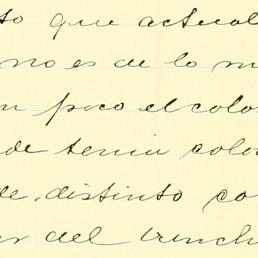 to que actual
no es de lo m
n poco el colo
de tenia colo
de, distinto co
del trinch